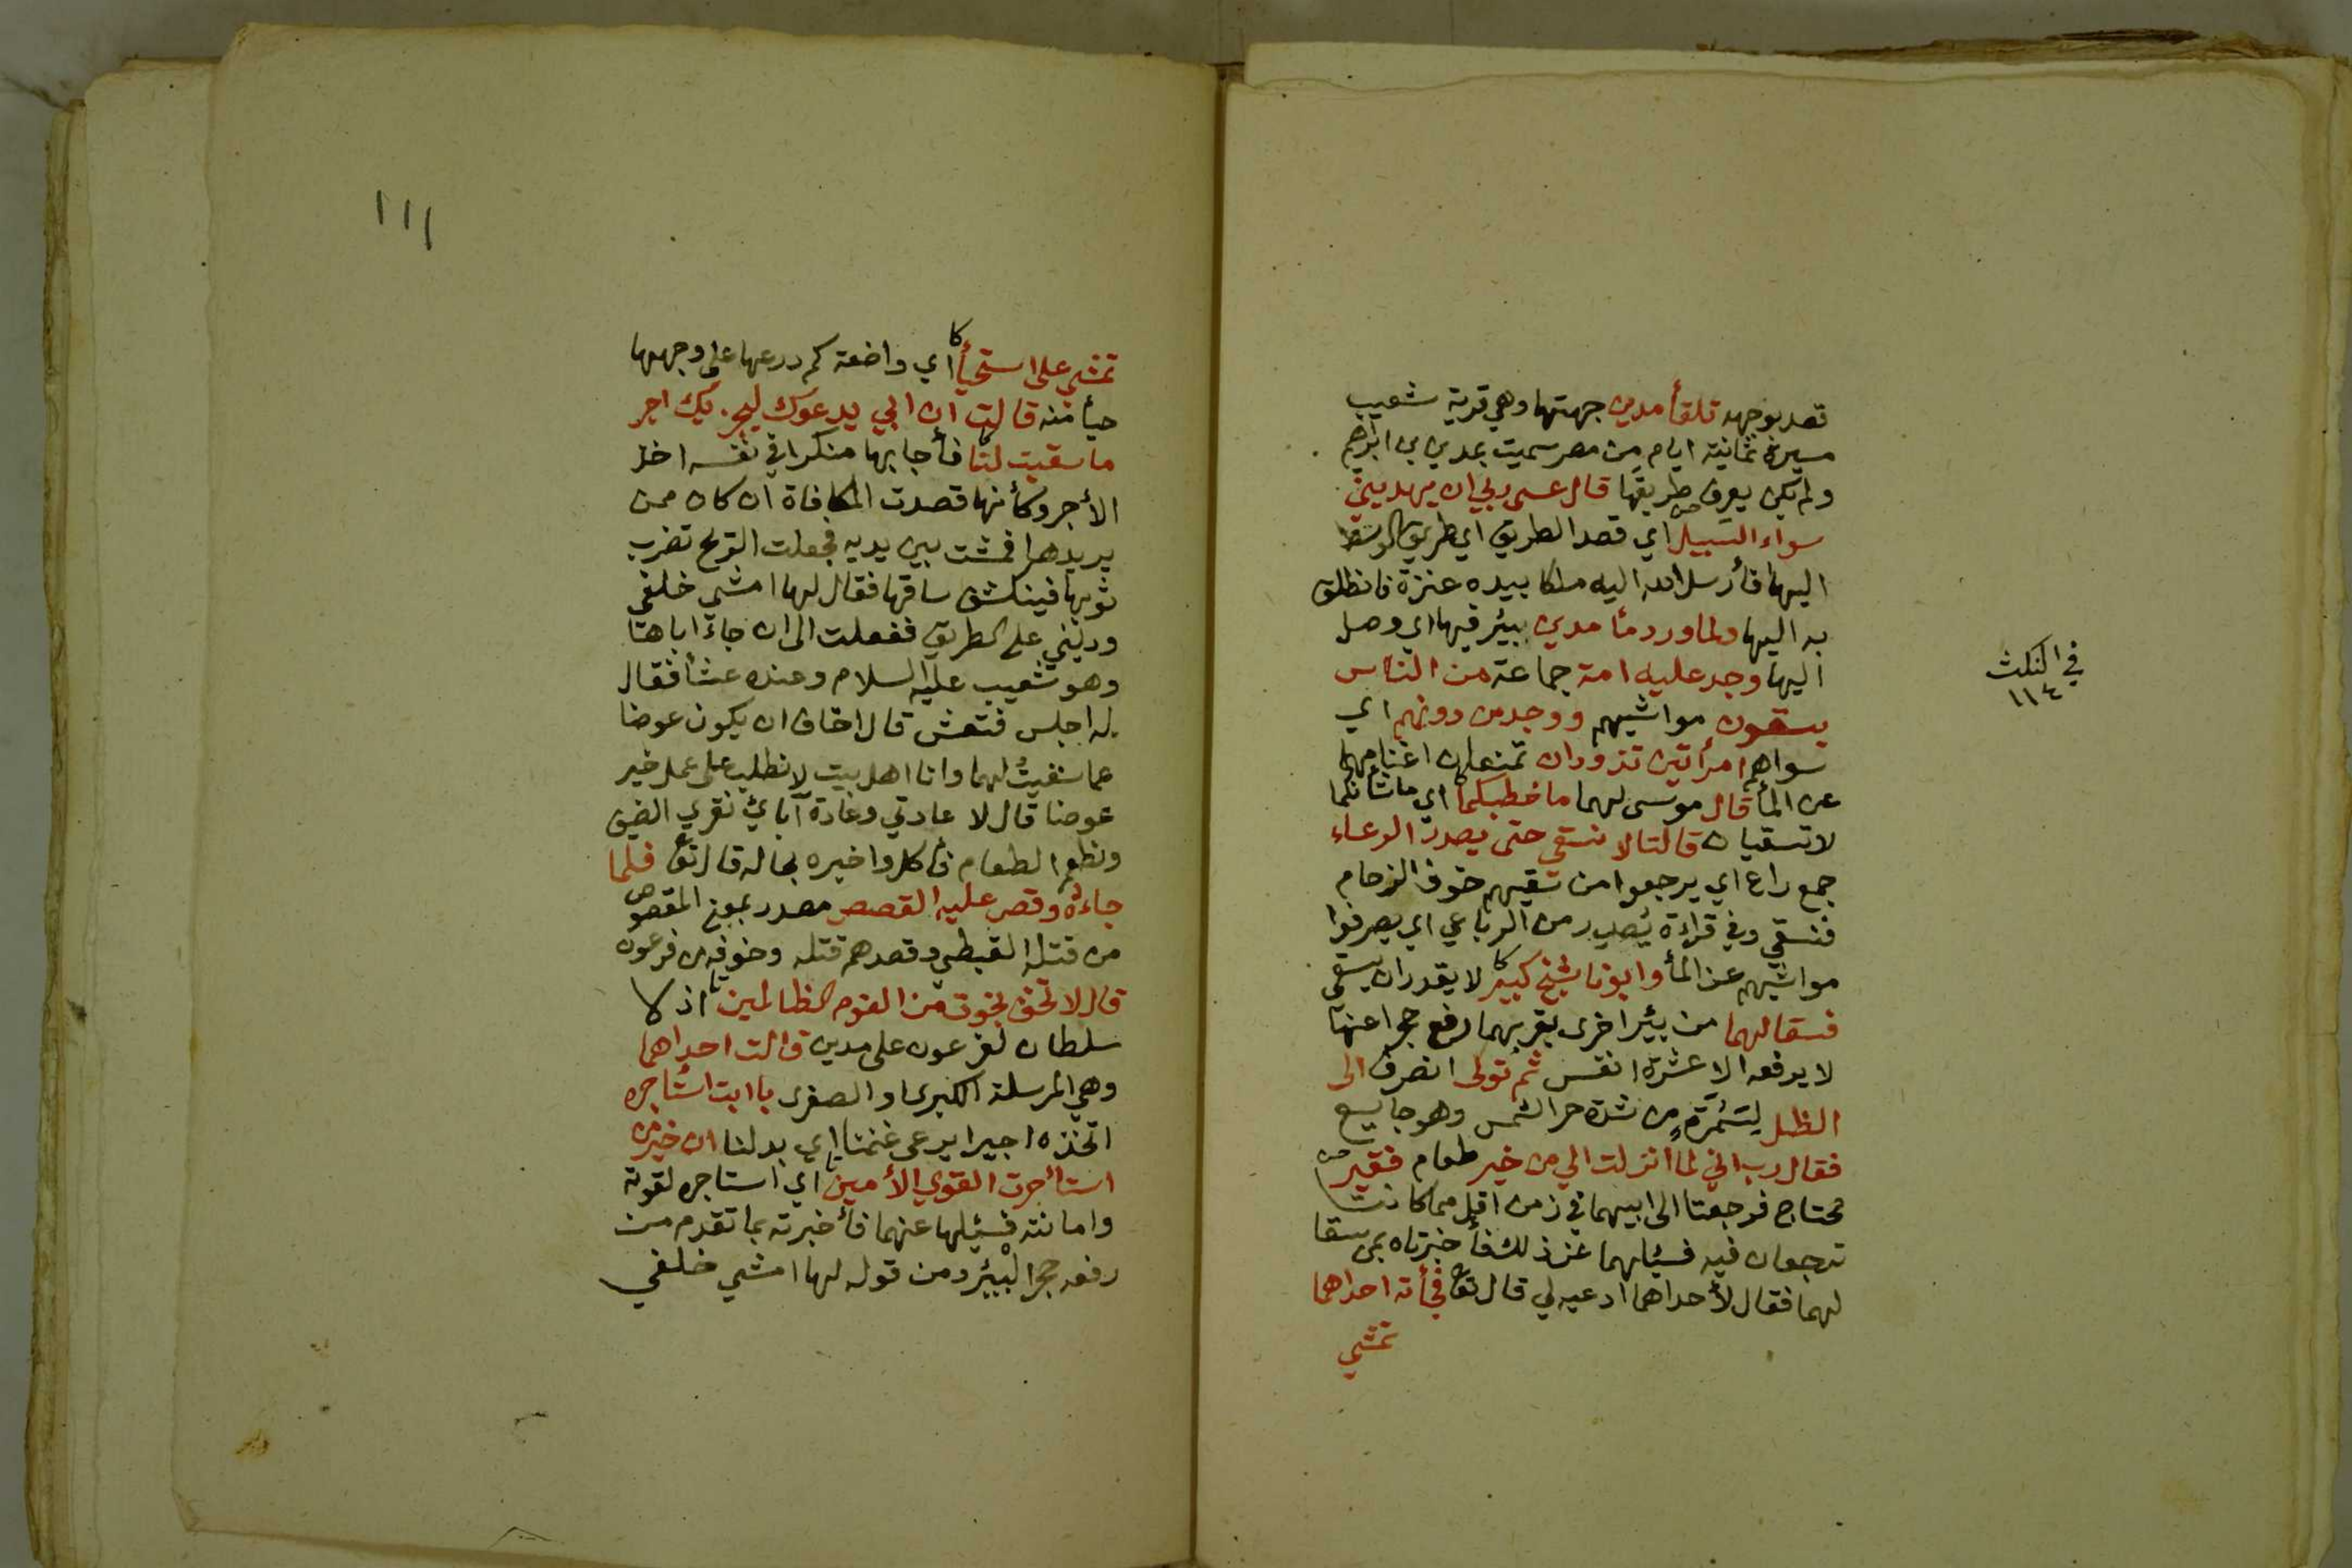 قصد بوجهه تلقأ مدين جهتها وهي قرية شعيب
مسيرة ثمانية ايام من مصر سميت بمدين بن ابراهيم
ولم يكن يعرف طريقها قال عسى ربي ان يهديني
سواء السبيل اي قصد الطريق اي طريق الوسط
اليها فأرسل الله اليه ملكا بيده عنزة فانطلق
به اليها ولما ورد مأ مدين بيئر فيها اي وصل
اليها وجد عليه امة جماعة من الناس
يسقون مواشيهم ووجد من دونهم اي
سواهم امرأتين تذودان تمنعان اغنامهما
عن المأ قال موسى لهما ما خطبكما اي ما شأنكما
لا تسقيان قالتا لا نسقي حتى يصدر الرعاء
جمع راع اي يرجعوا من سقيهم خوف الزحام
فنسقي وفي قراءة يُصدر من الرباعي اي يصرفوا
مواشيهم عن المأ وابونا شيخ كبير كا لا يقدر ان يسقى
فسقا لهما من بيئر اخرى بقربهما رفع حجرا عنها
لا يرفعه الا عشرة انفس ثم تولى انصرف الى
الظل لسَمُرَةٍ من شدة حر الشمس وهو جايع
فقال رب اني لما انزلت الي من خير طعام فقير
محتاج فرجعتا الى ابيهما في زمن اقل مما كانتا
ترجعان فيه فسئلهما عن ذلك فأخبرتاه بمن سقا
لهما فقال لأحداهما ادعيه لي قال تع فجأته احداهما
تمشي
في الثلث
١١٤
١١١
تمشي على استحيأ كا اي واضعة كم درعها على وجهها
حيأ منه قالت ان ابي يدعوك ليجزيك اجر
ما سقيت لنا فأجابها منكرا في نفسه اخذ
الأجر وكأنها قصدت المكافاة ان كان ممن
يريدها فمشت بين يديه فجعلت الريح تضرب
ثوبها فينكشف ساقها فقال لها امشي خلفي
ودليني على الطريق ففعلت الى ان جاء اباها
وهو شعيب عليه السلام وعنده عشأ فقال
له اجلس فتعش قال اخاف ان يكون عوضا
عما سقيتُ لهما وانا اهل بيت لا نطلب على عمل خير
عوضا قال لا عادتي وعادة آبائي نقري الضيف
ونطعم الطعام فأكل واخبره بحاله قال تع فلما
جاءهُ وقص عليه القصص مصدر بمعنى المقصوص
من قتله القبطي وقصدهم قتله وخوفه من فرعون
قال لا تخف نجوت من القوم الظالمين اذ لا
سلطان لفرعون على مدين قالت احداهما
وهي المرسلة الكبرى او الصغرى يا ابت استاجره
اتخذه اجيرا يرعى غنمنا اي بدلنا ان خير من
استأجرت القوي الأمين اي استاجره لقوته
وامانته فسئلها عنهما فأخبرته بما تقدم من
رفعه حجر البئر ومن قوله لها امشي خلفي